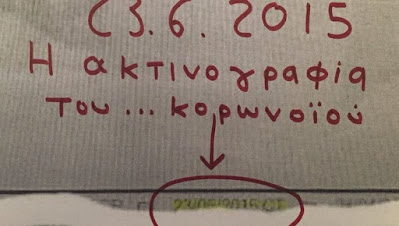 23.6.2015
Η ακτινογραφία
του... κορωνοϊού
23/06/2015